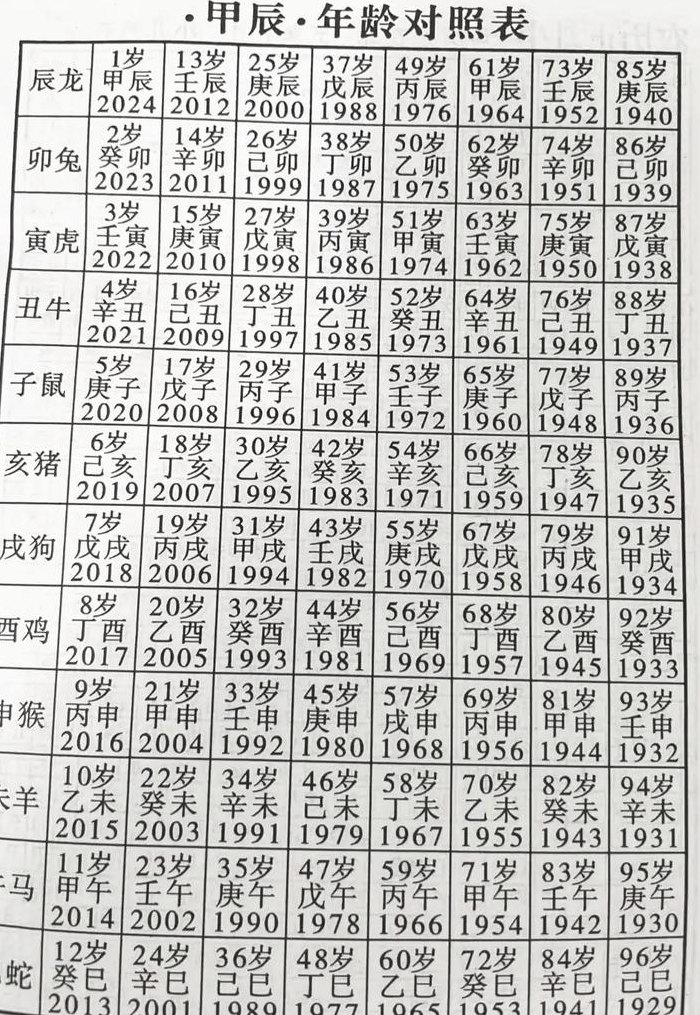 ·甲辰·年龄对照表
1岁 13岁 25岁 37岁 49岁 61岁 73岁 85岁
辰龙 甲辰 壬辰 庚辰 戊辰 丙辰 甲辰 壬辰 庚辰
2024 2012 2000 1988 1976 1964 1952 1940
2岁 14岁 26岁 38岁 50岁 62岁 74岁 86岁
卯兔 癸卯 辛卯 己卯 丁卯 乙卯 癸卯 辛卯 己卯
2023 2011 1999 1987 1975 1963 1951 1939
3岁 15岁 27岁 39岁 51岁 63岁 75岁 87岁
寅虎 壬寅 庚寅 戊寅 丙寅 甲寅 壬寅 庚寅 戊寅
2022 2010 1998 1986 1974 1962 1950 1938
4岁 16岁 28岁 40岁 52岁 64岁 76岁 88岁
丑牛 辛丑 己丑 丁丑 乙丑 癸丑 辛丑 己丑 丁丑
2021 2009 1997 1985 1973 1961 1949 1937
5岁 17岁 29岁 41岁 53岁 65岁 77岁 89岁
子鼠 庚子 戊子 丙子 甲子 壬子 庚子 戊子 丙子
2020 2008 1996 1984 1972 1960 1948 1936
6岁 18岁 30岁 42岁 54岁 66岁 78岁 90岁
亥猪 己亥 丁亥 乙亥 癸亥 辛亥 己亥 丁亥 乙亥
2019 2007 1995 1983 1971 1959 1947 1935
7岁 19岁 31岁 43岁 55岁 67岁 79岁 91岁
戌狗 戊戌 丙戌 甲戌 壬戌 庚戌 戊戌 丙戌 甲戌
2018 2006 1994 1982 1970 1958 1946 1934
8岁 20岁 32岁 44岁 56岁 68岁 80岁 92岁
酉鸡 丁酉 乙酉 癸酉 辛酉 己酉 丁酉 乙酉 癸酉
2017 2005 1993 1981 1969 1957 1945 1933
9岁 21岁 33岁 45岁 57岁 69岁 81岁 93岁
申猴 丙申 甲申 壬申 庚申 戊申 丙申 甲申 壬申
2016 2004 1992 1980 1968 1956 1944 1932
10岁 22岁 34岁 46岁 58岁 70岁 82岁 94岁
未羊 乙未 癸未 辛未 己未 丁未 乙未 癸未 辛未
2015 2003 1991 1979 1967 1955 1943 1931
11岁 23岁 35岁 47岁 59岁 71岁 83岁 95岁
马 甲午 壬午 庚午 戊午 丙午 甲午 壬午 庚午
2014 2002 1990 1978 1966 1954 1942 1930
12岁 24岁 36岁 48岁 60岁 72岁 84岁 96岁
蛇 癸巳 辛巳 己巳 丁巳 乙巳 癸巳 辛巳 己巳
2013 2001 1989 1977 1965 1953 1941 1929